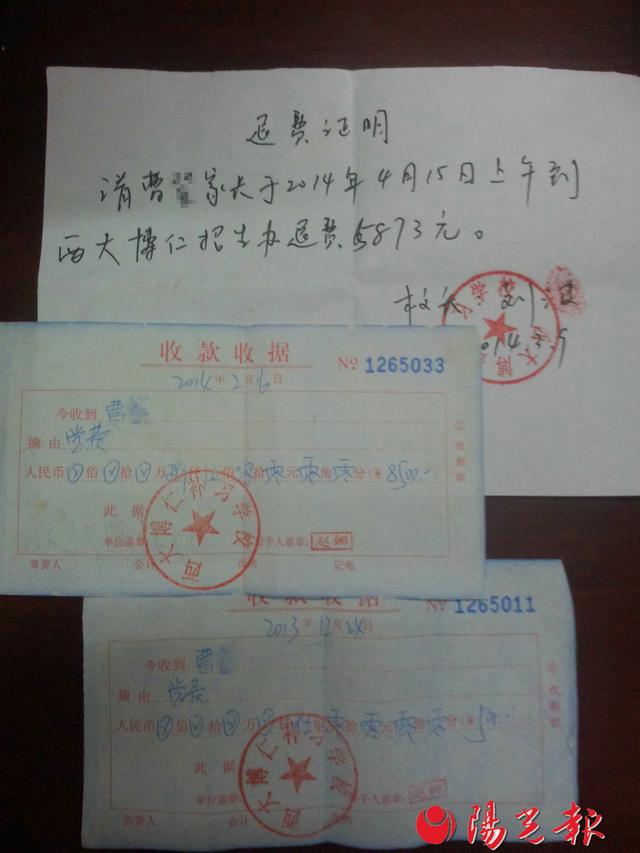 退费证明
请曹 家长于2014年4月15日上午到
西大博仁招生办退费5893元。
校长:
收款收据
№ 1265033
2014年2月16日
今收到 曹
摘由 学费
人民币 佰 拾 万 仟 佰 拾零元零角零分(¥8500.-)
此据
单位盖章: 经手人盖章:
负责人 会计 出纳 记账
② 收据联
西大博仁补习学校
收款收据
№ 1265011
2013年12月24日
今收到 曹
摘由 学费
人民币 佰 拾 万 仟伍佰零拾零元零角零分(¥500.-)
此据
单位盖章: 经手人盖章:
负责人 会计 出纳 记账
② 收据联
西大博仁补习学校
陽光報